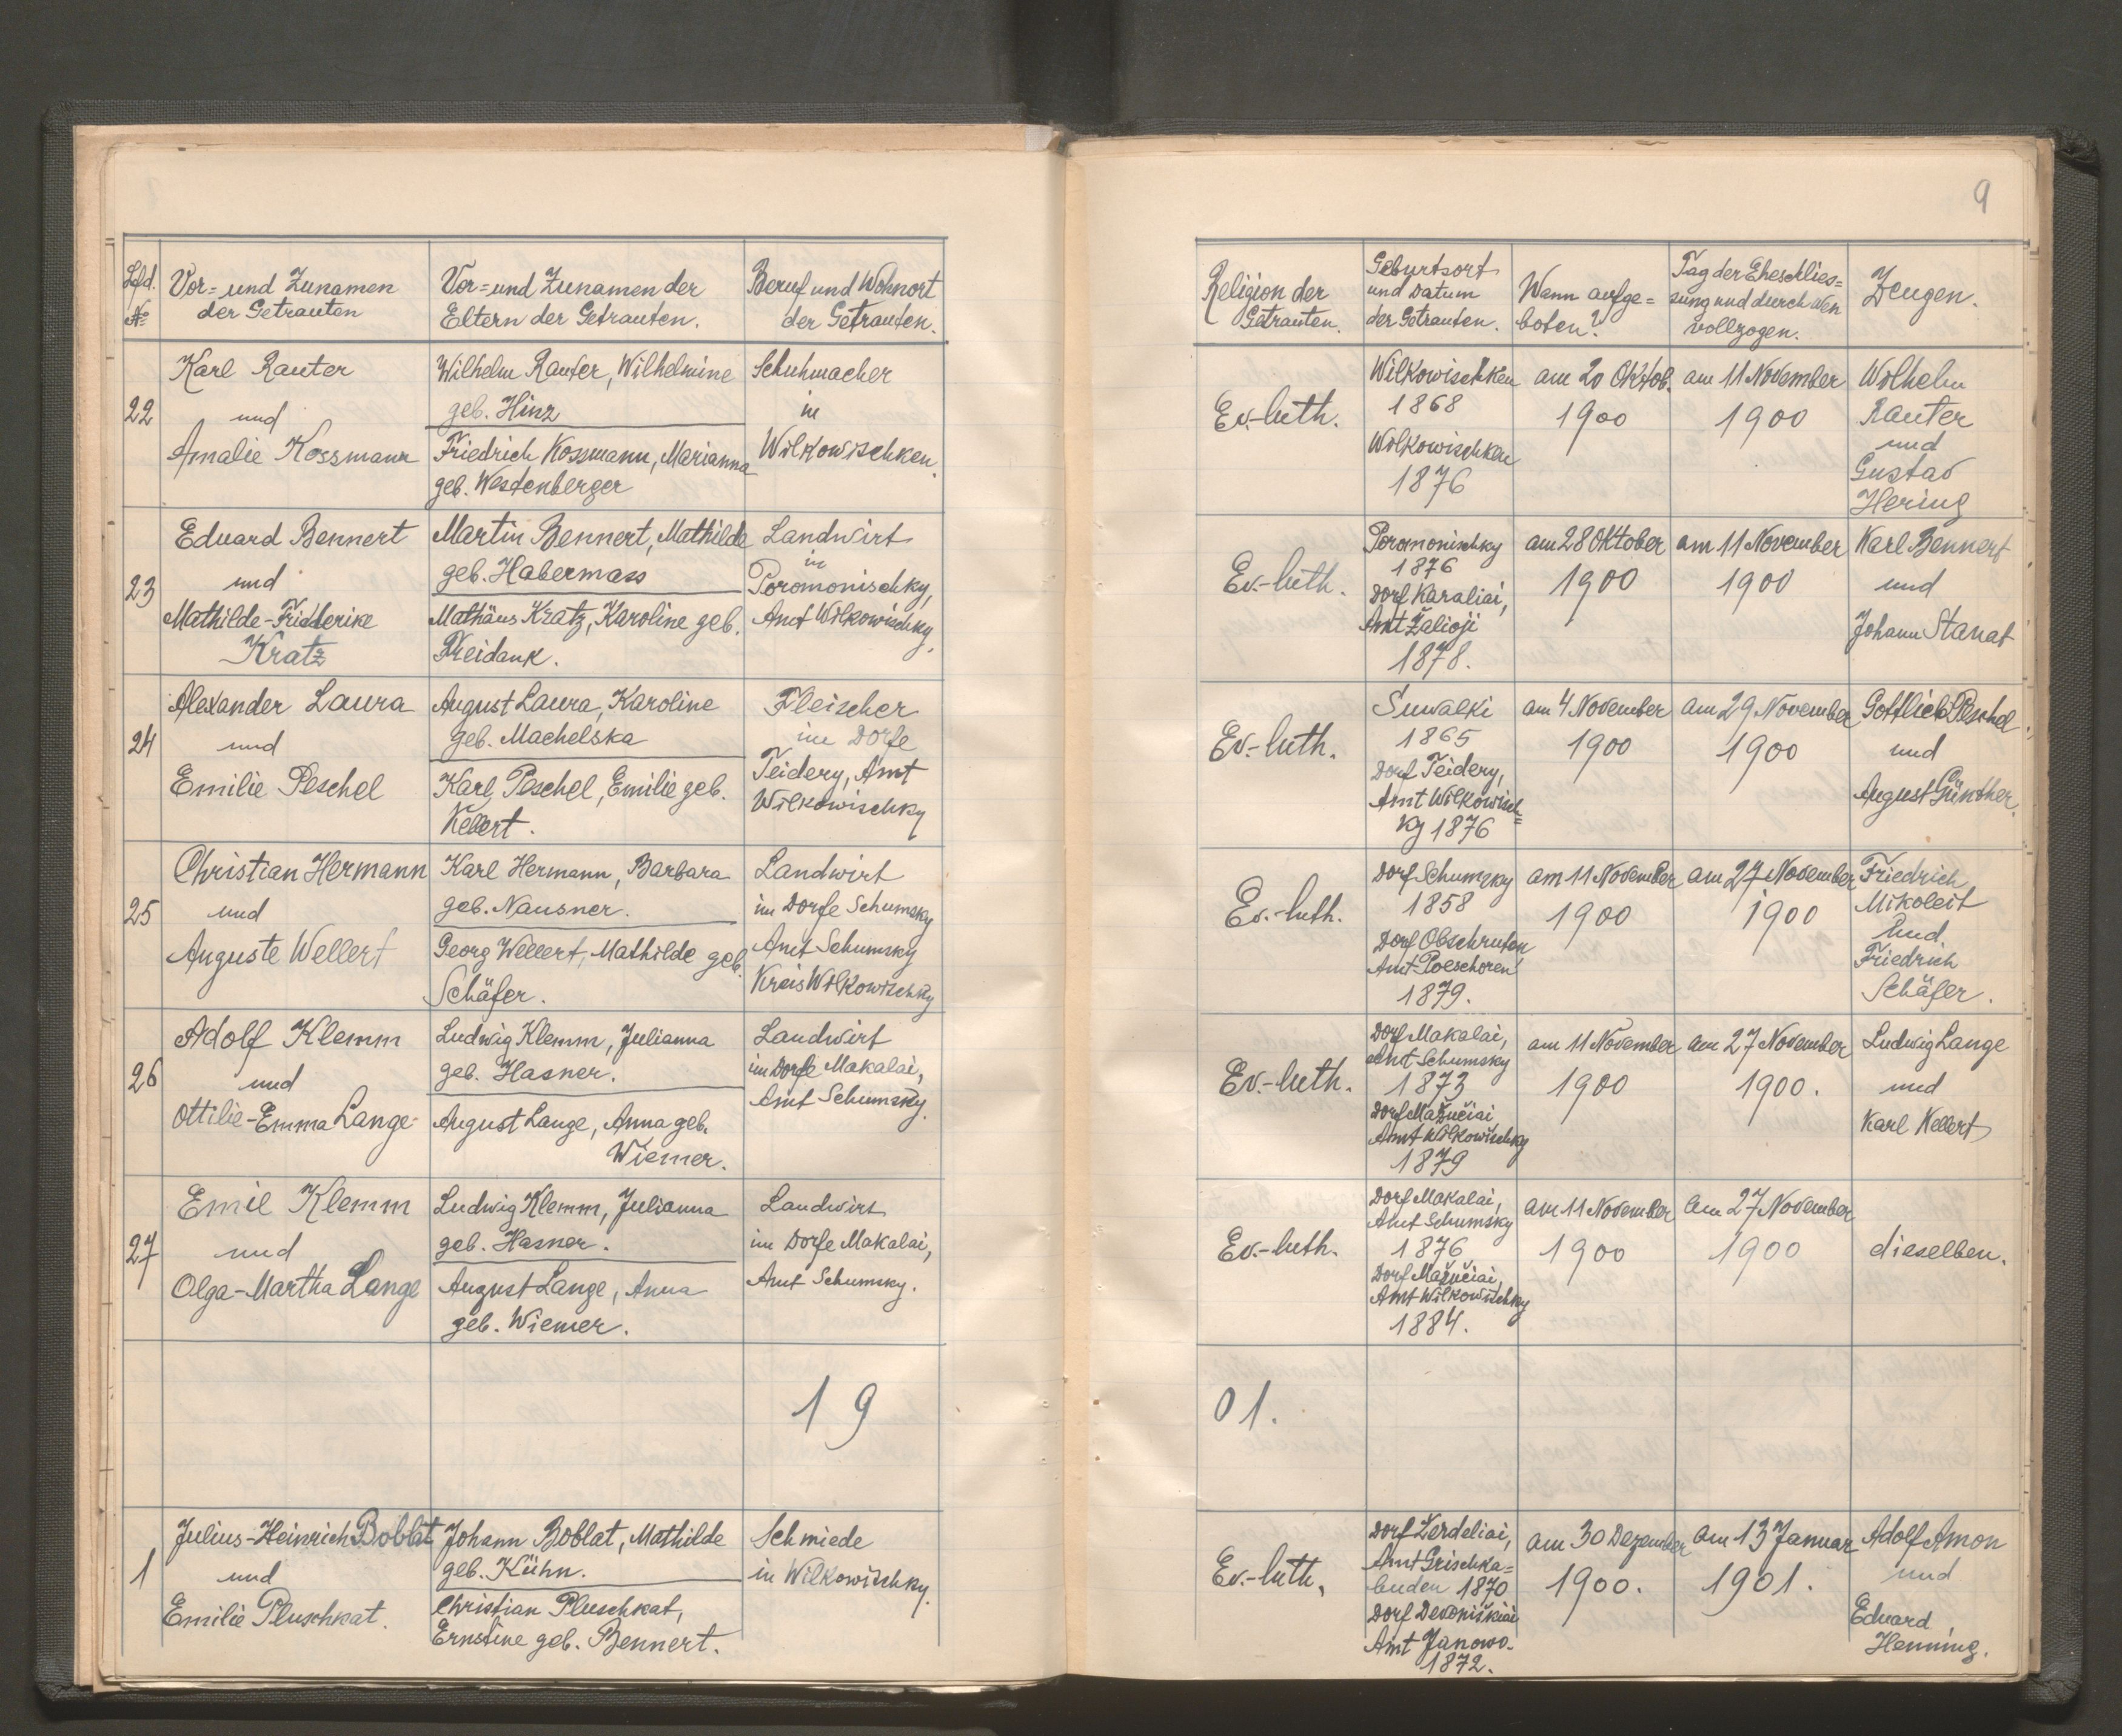 9
Lfd. No
Vor= und Zunamen
der Getrauten
Vor= und Zunamen der
Eltern der Getrauten.
Beruf und Wohnort
der Getrauten.
Religion der
Getrauten.
Geburtsort
und Datum
der Getrauten.
Wann aufge=
boten?
Tag der Eheschlies=
sung und durch wen
vollzogen.
Zeugen.
22
Karl Rauter
und
Amalie Kossmann
Wilhelm Rauter, Wilhelmine
geb. Hinz
Friedrich Kossmann, Marianna
geb. Westenberger
Schuhmacher
in
Wilkowischken.
Ev.-luth.
Wilkowischken
1868
Wilkowischken
1876
am 20 Oktob.
1900
am 11 November
1900
Wilhelm
Rauter
und
Gustav
Hering
23
Eduard Bennert
und
Mathilde-Fridderike
Kratz
Martin Bennert, Mathilde
geb. Habermass
Mathäus Kratz, Karoline geb.
Freidank.
Landwirt
in
Poromonischky,
Amt Wilkowischky.
Ev.-luth.
Poromonischky
1876
Dorf Karaliai,
Amt Žalioji
1878.
am 28 Oktober
1900
am 11 November
1900
Karl Bennert
und
Johann Stanat
24
Alexander Laura
und
Emilie Peschel
August Laura, Karoline
geb. Machelska
Karl Peschel, Emilie geb.
Kellert.
Fleischer
im Dorfe
Teidery, Amt
Wilkowischky
Ev.-luth.
Suwalki
1865
Dorf Teidery,
Amt Wilkowisch=
ky 1876
am 4 November
1900
am 29 November
1900
Gottlieb Peschel
und
August Günther.
25
Christian Hermann
und
Auguste Wellert
Karl Hermann, Barbara
geb. Nausner.
Georg Wellert, Mathilde geb.
Schäfer.
Landwirt
im Dorfe Schumsky
Amt Schumsky
Kreis Wilkowischky
Ev.-luth.
Dorf Schumsky
1858
Dorf Obschruten
Amt Poeschoren
1879.
am 11 November
1900
am 27 November
1900
Friedrich
Mikoleit
und
Friedrich
Schäfer.
26
Adolf Klemm
und
Ottilie-Emma Lange
Ludwig Klemm, Julianna
geb. Hasner.
August Lange, Anna geb.
Wiemer.
Landwirt
im Dorfe Makalai,
Amt Schumsky.
Ev.-luth.
Dorf Makalai,
Amt Schumsky
1873
Dorf Mažučiai
Amt Wilkowischky
1879
am 11 November
1900
am 27 November
1900.
Ludwig Lange
und
Karl Kellert
27
Emil Klemm
und
Olga-Martha Lange
Ludwig Klemm, Julianna
geb. Hasner.
August Lange, Anna
geb. Wiemer.
Landwirt
im Dorfe Makalai,
Amt Schumsky.
Ev.-luth.
Dorf Makalai,
Amt Schumsky
1876
Dorf Mažučiai,
Amt Wilkowischky
1884.
am 11 November
1900
am 27 November
1900
dieselben.
19
01.
1
Julius-Heinrich Boblat
und
Emilie Pluschkat.
Johann Boblat, Mathilde
geb. Kühn.
Christian Pluschkat,
Ernstine geb. Bennert.
Schmiede
in Wilkowischky.
Ev.-luth.
Dorf Zerdeliai,
Amt Grischka=
buden 1870
Dorf Devoniškiai
Amt Janowo.
1872.
am 30 Dezember
1900.
am 13 Januar
1901.
Adolf Amon
und
Eduard
Henning.